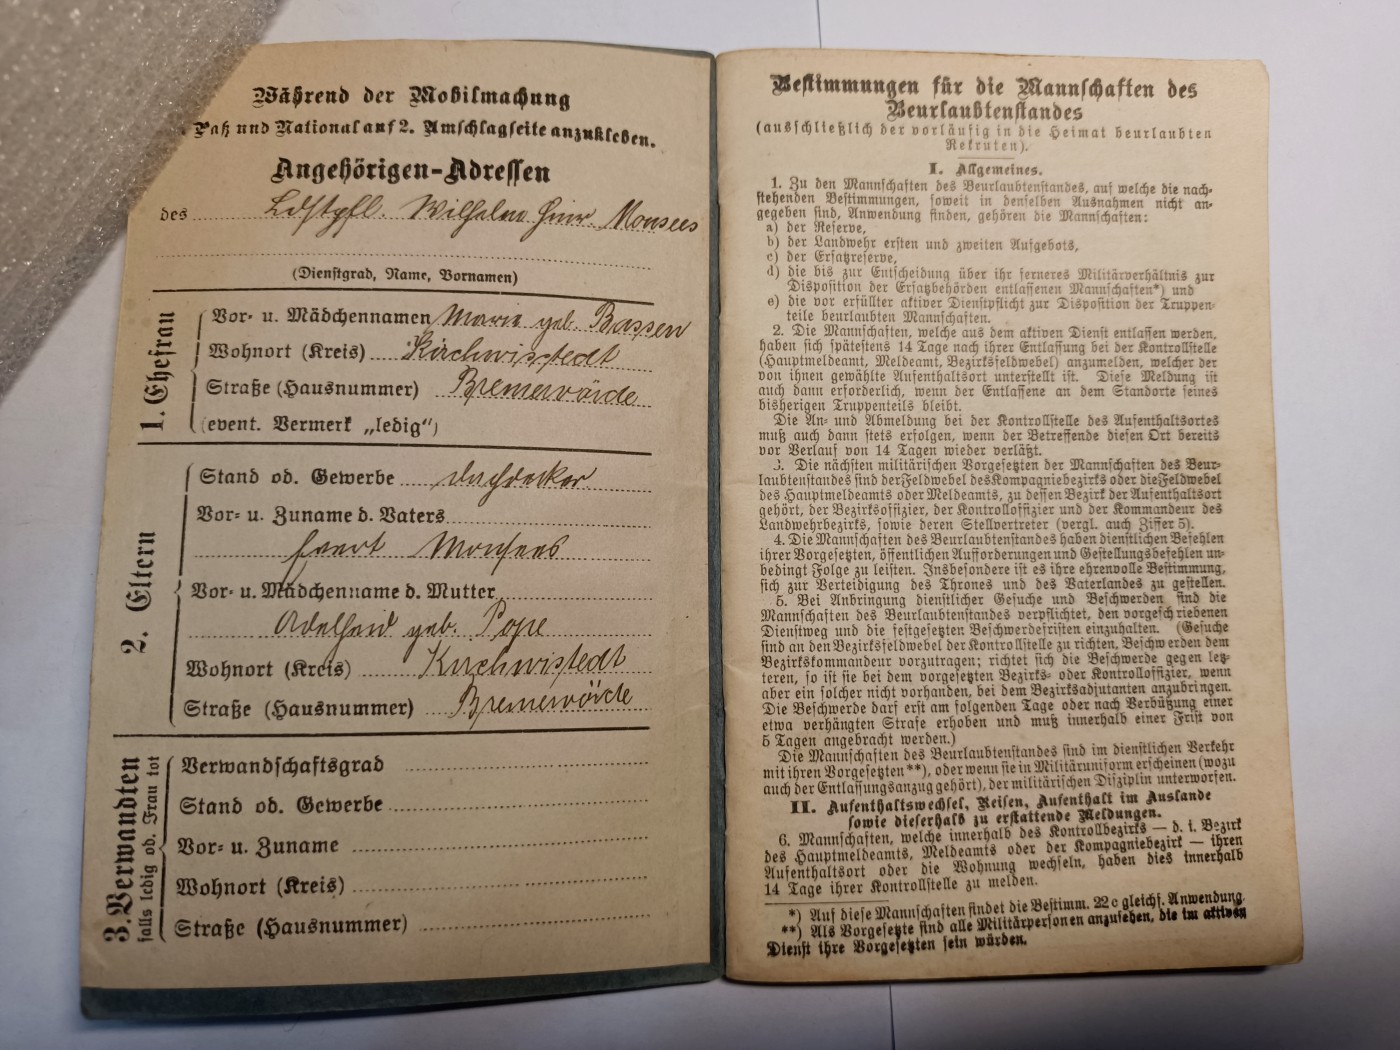 Während der Mobilmachung
Paß und National auf 2. Umschlagseite anzukleben.
Angehörigen-Adressen
des Ldstpfl. Wilhelm Hinr. Monsees
(Dienstgrad, Name, Vornamen)
1. Ehefrau
Vor- u. Mädchennamen Marie geb. Bassen
Wohnort (Kreis) Kirchwistedt
Straße (Hausnummer) Bremervörde
(event. Vermerk „ledig“)
2. Eltern
Stand od. Gewerbe Dachdecker
Vor- u. Zuname d. Vaters
Monsees
Vor- u. Mädchenname d. Mutter
Adelheid geb. Pope
Wohnort (Kreis) Kirchwistedt
Straße (Hausnummer) Bremervörde
3. Verwandten
falls ledig od. Frau tot
Verwandschaftsgrad
Stand od. Gewerbe
Vor- u. Zuname
Wohnort (Kreis)
Straße (Hausnummer)
Bestimmungen für die Mannschaften des
Beurlaubtenstandes
(ausschließlich der vorläufig in die Heimat beurlaubten
Rekruten).
I. Allgemeines.
1. Zu den Mannschaften des Beurlaubtenstandes, auf welche die nach-
stehenden Bestimmungen, soweit in denselben Ausnahmen nicht an-
gegeben sind, Anwendung finden, gehören die Mannschaften:
a) der Reserve,
b) der Landwehr ersten und zweiten Aufgebots,
c) der Ersatzreserve,
d) die bis zur Entscheidung über ihr ferneres Militärverhältnis zur
Disposition der Ersatzbehörden entlassenen Mannschaften*) und
e) die vor erfüllter aktiver Dienstpflicht zur Disposition der Truppen-
teile beurlaubten Mannschaften.
2. Die Mannschaften, welche aus dem aktiven Dienst entlassen werden,
haben sich spätestens 14 Tage nach ihrer Entlassung bei der Kontrollstelle
(Hauptmeldeamt, Meldeamt, Bezirksfeldwebel) anzumelden, welcher der
von ihnen gewählte Aufenthaltsort unterstellt ist. Diese Meldung ist
auch dann erforderlich, wenn der Entlassene an dem Standorte seines
bisherigen Truppenteils bleibt.
Die An- und Abmeldung bei der Kontrollstelle des Aufenthaltsortes
muß auch dann stets erfolgen, wenn der Betreffende diesen Ort bereits
vor Verlauf von 14 Tagen wieder verläßt.
3. Die nächsten militärischen Vorgesetzten der Mannschaften des Beur-
laubtenstandes sind der Feldwebel des Kompagniebezirks oder die Feldwebel
des Hauptmeldeamts oder Meldeamts, zu dessen Bezirk der Aufenthaltsort
gehört, der Bezirksoffizier, der Kontrolloffizier und der Kommandeur des
Landwehrbezirks, sowie deren Stellvertreter (vergl. auch Ziffer 5).
4. Die Mannschaften des Beurlaubtenstandes haben dienstlichen Befehlen
ihrer Vorgesetzten, öffentlichen Aufforderungen und Gestellungsbefehlen un-
bedingt Folge zu leisten. Insbesondere ist es ihre ehrenvolle Bestimmung,
sich zur Verteidigung des Thrones und des Vaterlandes zu gestellen.
5. Bei Anbringung dienstlicher Gesuche und Beschwerden sind die
Mannschaften des Beurlaubtenstandes verpflichtet, den vorgeschriebenen
Dienstweg und die festgesetzten Beschwerdefristen einzuhalten. (Gesuche
sind an den Bezirksfeldwebel der Kontrollstelle zu richten, Beschwerden dem
Bezirkskommandeur vorzutragen; richtet sich die Beschwerde gegen letz-
teren, so ist sie bei dem vorgesetzten Bezirks- oder Kontrolloffizier, wenn
aber ein solcher nicht vorhanden, bei dem Bezirksadjutanten anzubringen.
Die Beschwerde darf erst am folgenden Tage oder nach Verbüßung einer
etwa verhängten Strafe erhoben und muß innerhalb einer Frist von
5 Tagen angebracht werden.)
Die Mannschaften des Beurlaubtenstandes sind im dienstlichen Verkehr
mit ihren Vorgesetzten**), oder wenn sie in Militäruniform erscheinen (wozu
auch der Entlassungsanzug gehört), der militärischen Disziplin unterworfen.
II. Aufenthaltswechsel, Reisen, Aufenthalt im Auslande
sowie dieserhalb zu erstattende Meldungen.
6. Mannschaften, welche innerhalb des Kontrollbezirks — d. i. Bezirk
des Hauptmeldeamts, Meldeamts oder der Kompagniebezirk — ihren
Aufenthaltsort oder die Wohnung wechseln, haben dies innerhalb
14 Tage ihrer Kontrollstelle zu melden.
*) Auf diese Mannschaften findet die Bestimm. 22 c gleichf. Anwendung.
**) Als Vorgesetzte sind alle Militärpersonen anzusehen, die im aktiven
Dienst ihre Vorgesetzten sein würden.